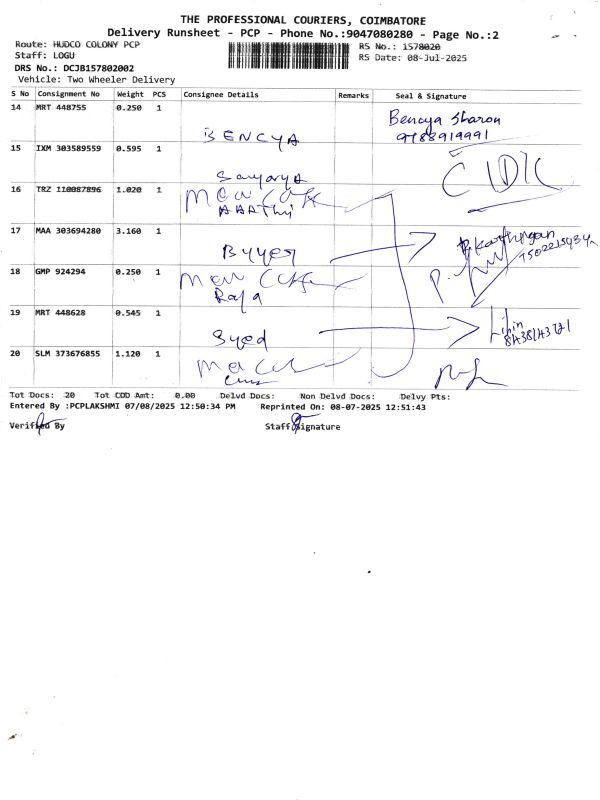 THE PROFESSIONAL COURIERS, COIMBATORE
Delivery Runsheet - PCP - Phone No.:9047080280 - Page No.:2
Route: HUDCO COLONY PCP RS No.: 1578020
Staff: LOGU RS Date: 08-Jul-2025
DRS No.: DCJB157802002
Vehicle: Two Wheeler Delivery
S No Consignment No Weight PCS Consignee Details Remarks Seal & Signature
14 MRT 448755 0.250 1 BENCYA Bencya Sharon
9788919991
15 IXM 303589559 0.595 1
16 TRZ 110087896 1.020 1
AAATHY
17 MAA 303694280 3.160 1
18 GMP 924294 0.250 1
Raja
19 MRT 448628 0.545 1 Syed
20 SLM 373676855 1.120 1
Tot Docs: 20 Tot COD Amt: 0.00 Delvd Docs: Non Delvd Docs: Delvy Pts:
Entered By :PCPLAKSHMI 07/08/2025 12:50:34 PM Reprinted On: 08-07-2025 12:51:43
Verified By Staff Signature